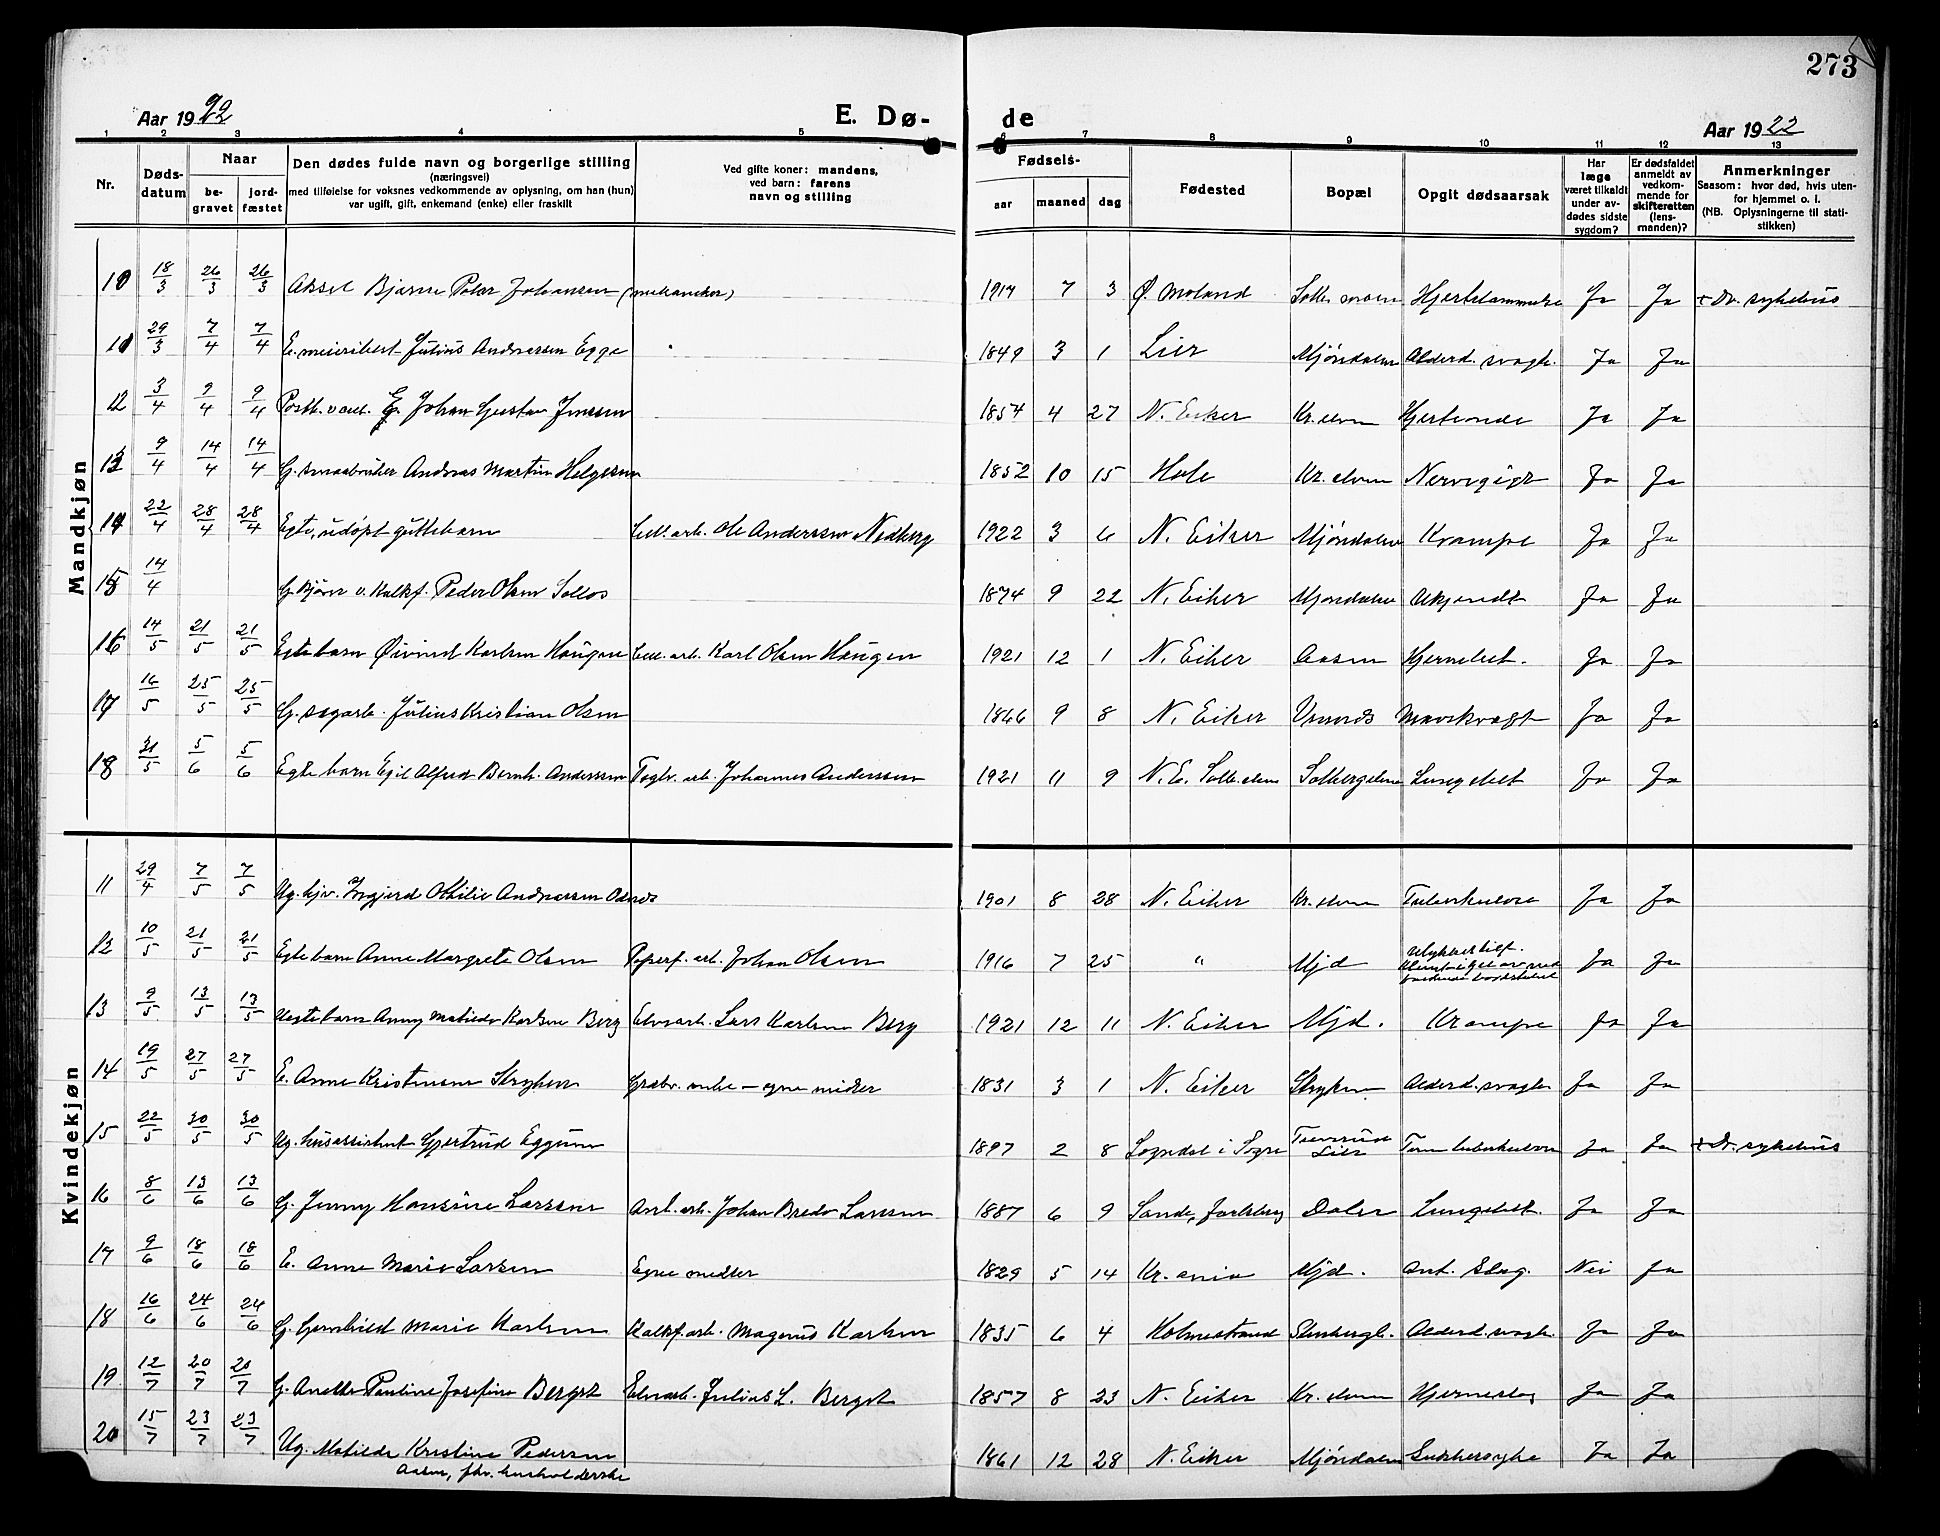 273
Aar 1922
E. Dø-
de
Aar 1922
1 2 3 4 5 6 7 8 9 10 11 12 13
Nr.
Døds-
datum
Naar
be-
gravet
jord-
fæstet
Den dødes fulde navn og borgerlige stilling
(næringsvei)
med tilføielse for voksnes vedkommende av oplysning, om han (hun)
var ugift, gift, enkemand (enke) eller fraskilt
Ved gifte koner: mandens,
ved barn: farens
navn og stilling
Fødsels-
aar maaned dag
Fødested
Bopæl
Opgit dødsaarsak
Har
læge
været tilkaldt
under av-
dødes sidste
sygdom?
Er dødsfaldet
anmeldt av
vedkom-
mende for
skifteretten
(lens-
manden)?
Anmerkninger
Saasom: hvor død, hvis uten-
for hjemmet o. l.
(NB. Oplysningerne til stati-
stikken)
Mandkjøn
10 18/3 26/3 26/3 Aksel Bjarne Johansen 1917 7 3 Ø. Moland Ja Ja + Dr. sykehus
11 29/3 7/4 7/4 E. meieribest. Julius Andreassen Egge 1849 3 1 Lier Mjøndalen Alderd. svagh. Ja Ja
12 3/4 9/4 9/4 E. Johan Gustav Jenssen 1854 4 27 N. Eiker Kr. elven Hjerteonde Ja Ja
13 9/4 14/4 14/4 G. smaabruker Andreas Martin Helgesen 1852 10 15 Hole Kr. elven Nervegigt Ja Ja
14 22/4 28/4 28/4 Egte, udøpt guttebarn Cell. arb. Ole Anderssen Nedberg 1922 3 6 N. Eiker Mjøndalen Krampe Ja Ja
15 14/4 G. kjører v. Kalkf. Peder Olsen Solbos 1874 9 22 N. Eiker Mjøndalen Ukjendt Ja Ja
16 14/5 21/5 21/5 Egte barn Øivind Karlsen Haugen Cell. arb. Karl Olsen Haugen 1921 12 1 N. Eiker Aasen Hjernebet. Ja Ja
17 16/5 25/5 25/5 G. sagarb. Julius Kristian Olsen 1866 9 8 N. Eiker Mavekræft Ja Ja
18 31/5 5/6 5/6 Egte barn Egil Alfred Bernh. Anderssen Teglv. arb. Johannes Anderssen 1921 11 9 N. E. Solb. elven Solbergelven Lungebet Ja Ja
Kvindekjøn
11 29/4 7/5 7/5 Ug. hjv. Ingjerd Othilie Andreassen 1901 8 28 N. Eiker Kr. elven Tuberkulose Ja Ja
12 10/5 21/5 21/5 Egte barn Anne Margrete Olsen Papirf. arb. Johan Olsen 1916 7 25 " Mjd Ulykkestilf. Ja Ja
13 9/5 13/5 13/5 Uegte barn Anny Matilde Karlsen Berg Elvearb. Lars Karlsen Berg 1921 12 11 N. Eiker Mjd. Krampe Ja Ja
14 19/5 27/5 27/5 E. Anne Kristiansen Stryken Grdbr. enke – egne midler 1831 3 1 N. Eiker Stryken Alderd. svagh. Ja Ja
15 22/5 30/5 30/5 Ug. husassistent Gjertrud Eggum 1897 2 8 Sogndal i Sogn Lier Tarm tuberkulose Ja Ja + Dr. sykehus
16 8/6 13/6 13/6 G. Jenny Hansine Larssen Anl. arb. Johan Bredo Larssen 1887 6 9 Sande, Jarlsberg Dalen Lungebet. Ja Ja
17 9/6 18/6 18/6 E. Anne Marie Larsen Egne midler 1829 5 14 Kr. ania Mjd. Ant. Slag. Nei Ja
18 16/6 24/6 24/6 G. Gunhild Marie Karlsen Kalkf. arb. Magnus Karlsen 1835 6 4 Holmestrand Stenbergl. Alderd. svagh. Ja Ja
19 12/7 20/7 20/7 G. Anette Pauline Josefine Bergst Elvearb. Julius L. Bergst 1857 8 23 N. Eiker Kr. elven Hjerneslag Ja Ja
20 15/7 23/7 23/7 Ug. Matilde Kristine Pedersen 1861 12 28 N. Eiker Mjøndalen Sukkersyke Ja Ja
Aasen, fhv. husholderske